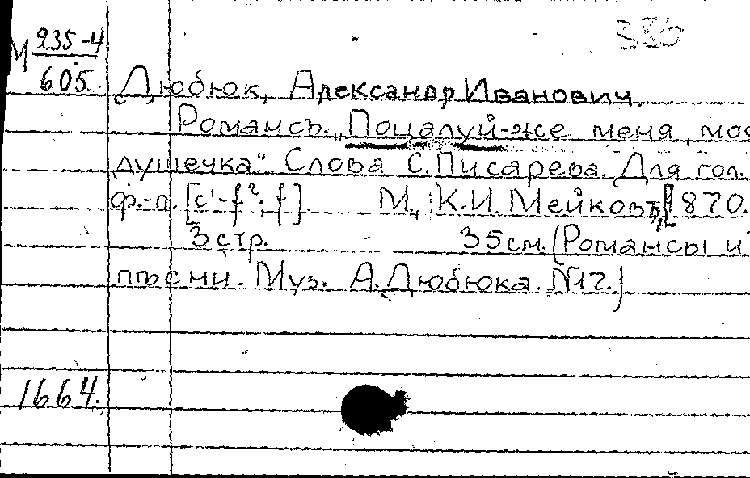 335
М 935-4
605. Дюбюк, Александр Иванович.
Романсъ. „Поцалуй-же меня, моя
душечка" Слова С. Писарева. Для гол.
ф.-п. [c'-f²; f]. М., К.И. Мейковъ, [1870.
3 стр. 35 см. (Романсы и
пѣсни. Муз. А. Дюбюка. N17.)
1664.